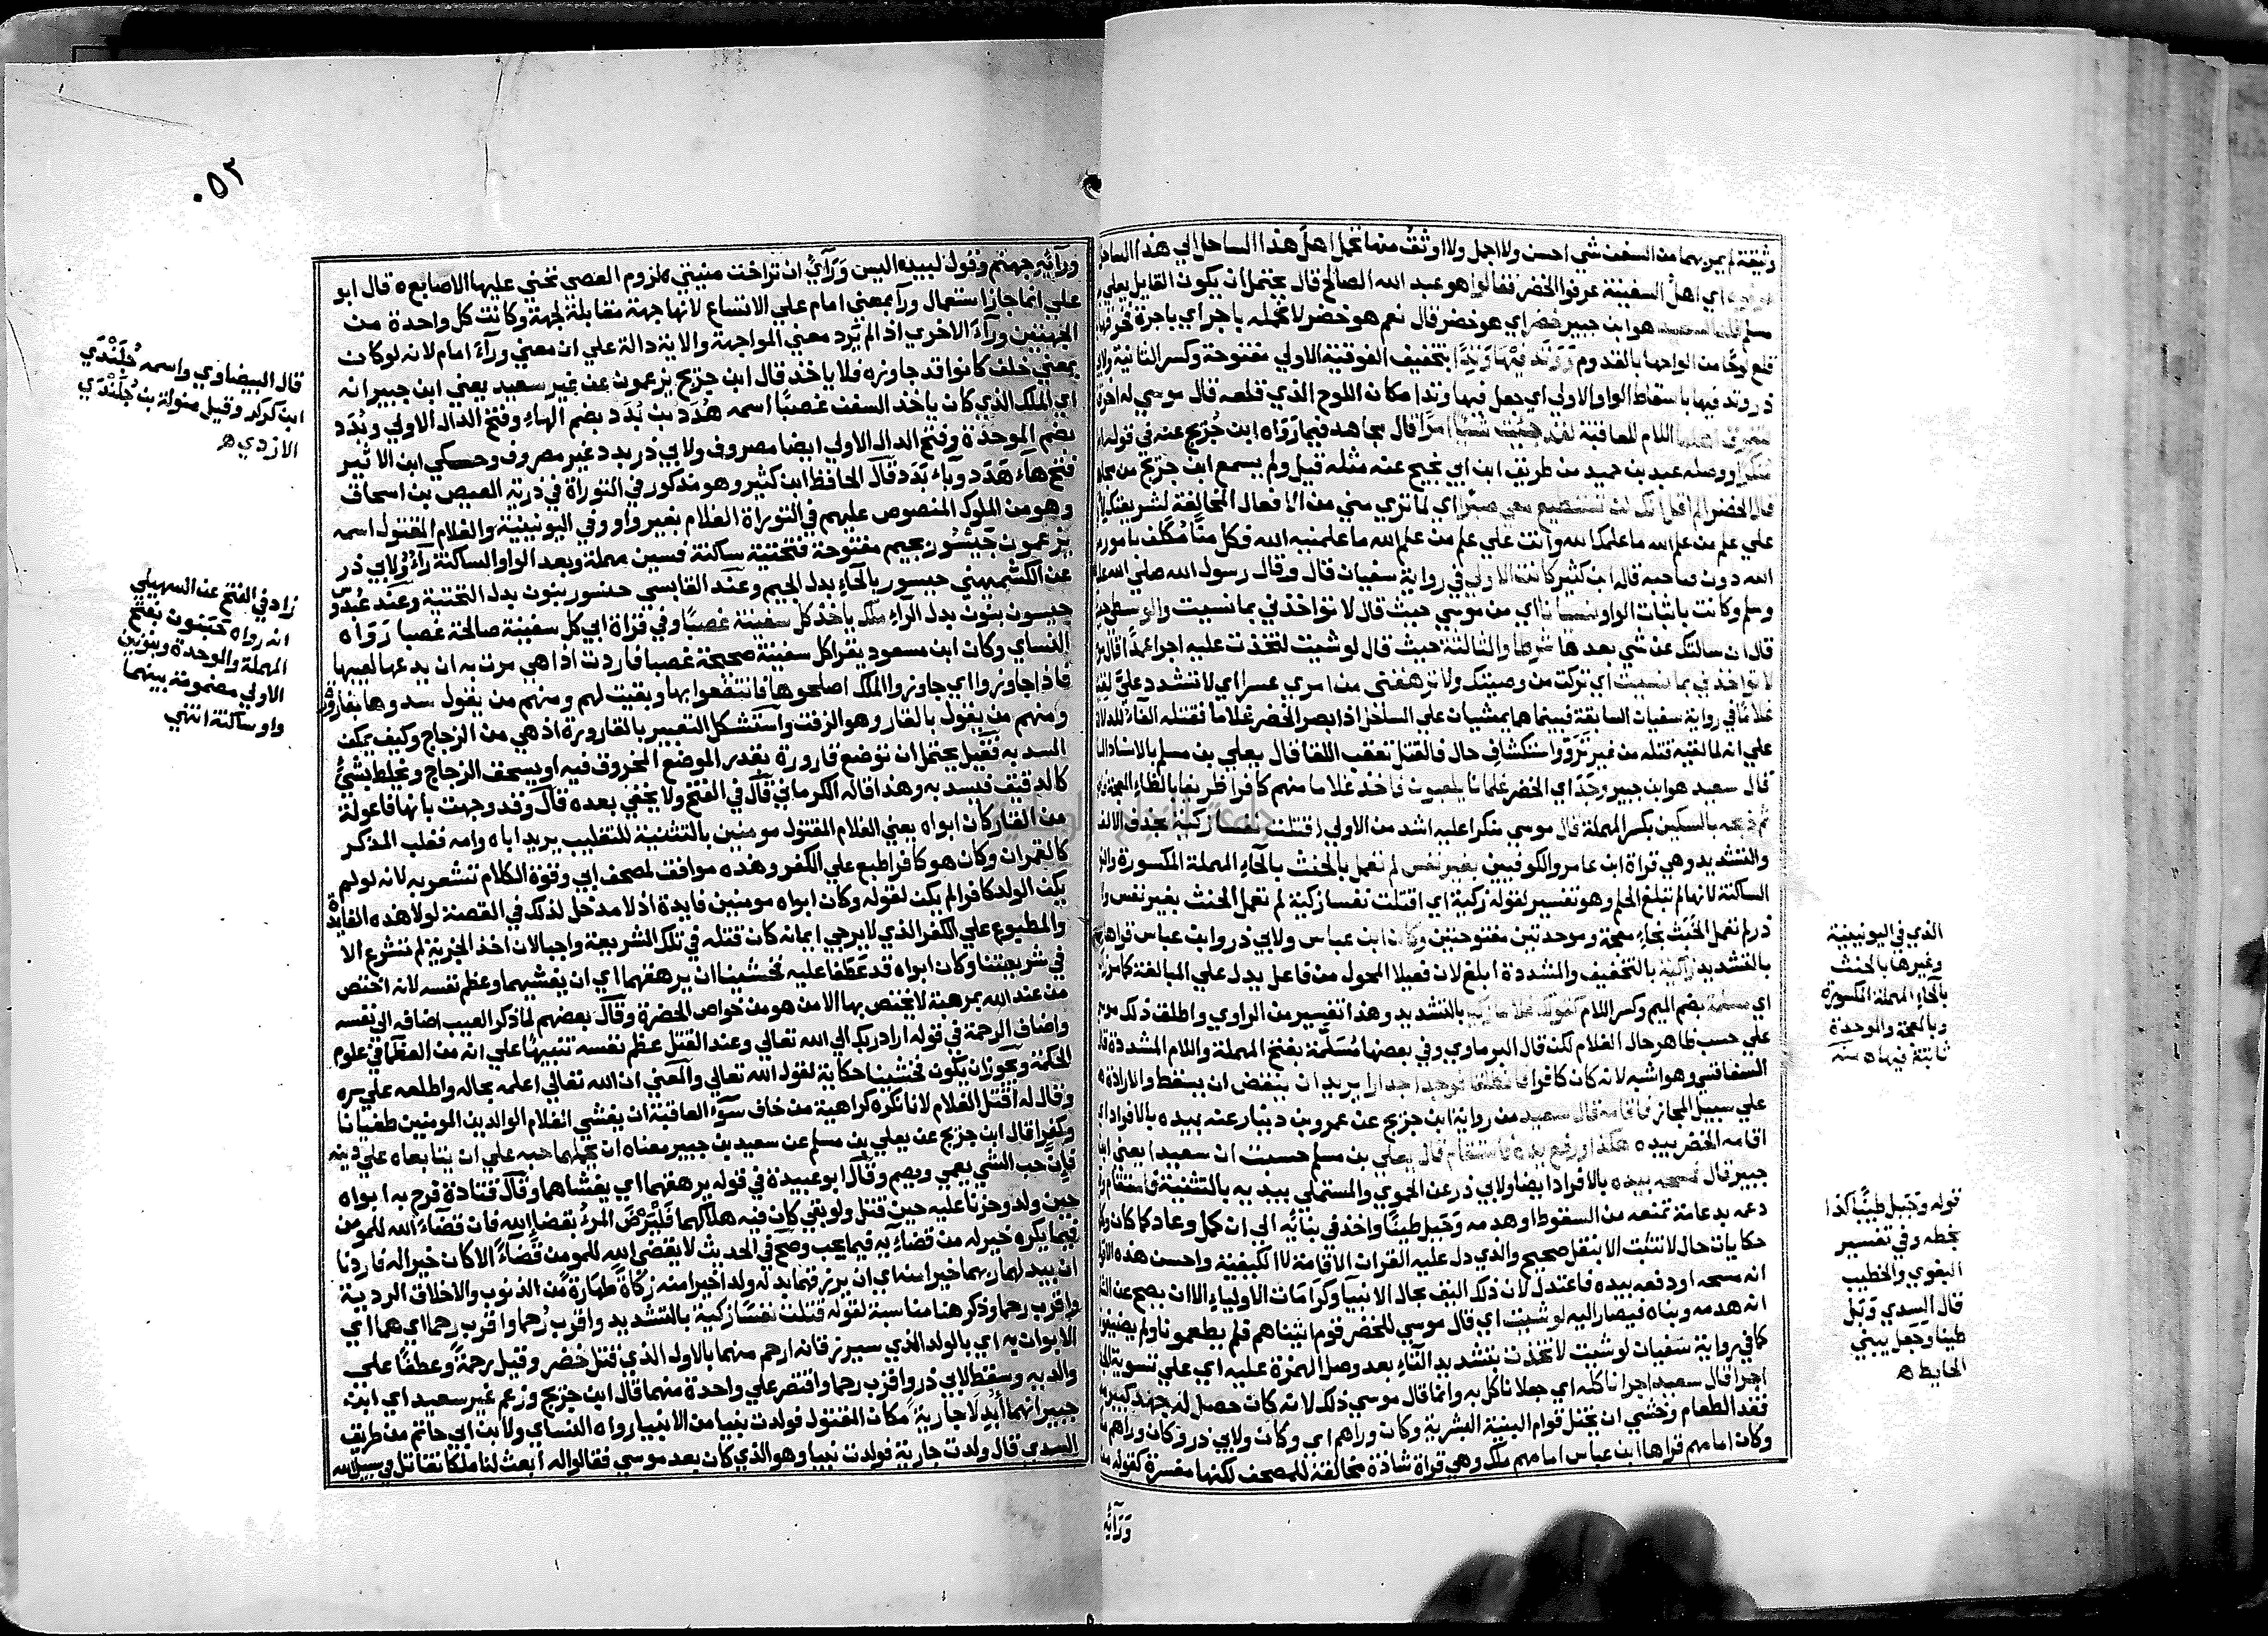 وثيقة لم يمر بهما من السفن شي احسن ولا اجمل ولا اوثق منها تحمل اهل هذا الساحل الي هذا الساحل
اي اهل السفينة عرفوا الخضر فقالوا هو عبد الله الصالح قال يحتمل ان يكون القايل يعلي بن
مسلم هو ابن جبير خضر اي هو خضر قال نعم هو خضر لا نحمله باجر اي باجرة فخرقها
قلع لوحا من الواحها بالقدوم ووتد فيها وتدا بتخفيف الفوقية الاولي مفتوحة وكسر الثانية ولابي
ذر وتد فيها باسقاط الواو الاولي اي جعل فيها وتدا مكان اللوح الذي قلعه قال موسي له اخرقتها
لتغرق اهلها اللام للعاقبة لقد جيت شيا امرا قال مجاهد فيما رواه ابن جريج عنه في قوله امرا
منكرا ووصله عبد بن حميد من طريق ابن ابي نجيح عنه مثله قيل ولم يسمع ابن جريج من مجاهد
قال الخضر الم اقل انك لن تستطيع معي صبرا اي لما تري مني من الافعال المخالفة لشريعتك لاني
علي علم من علم الله ما علمك الله وانت علي علم من علم الله ما علمنيه الله فكل منا مكلف بامور من
الله دون صاحبه قاله ابن كثير كانت الاولي في رواية سفيان قال وقال رسول الله صلي الله عليه
وسلم وكانت باثبات الواو نسيانا اي من موسي حيث قال لا تواخذني بما نسيت والوسطي حيث
قال ان سالتك عن شي بعدها شرطا والثالثة حيث قال لو شيت لتخذت عليه اجرا عمدا قال
لا تواخذني بما نسيت اي تركت من وصيتك ولا ترهقني من امري عسرا اي لا تشدد علي لقيا
غلاما في رواية سفيان السابقة فبينما هما يمشيان علي الساحل اذ ابصر الخضر غلاما فقتله الفاء للدلالة
علي انه لما لقيه قتله من غير ترو واستكشاف حال فالقتل تعقب اللقا قال يعلي بن مسلم بالاسناد السابق
قال سعيد هو ابن جبير وجد اي الخضر غلمانا يلعبون فاخذ غلاما منهم كافرا ظريفا بالظاء المعجمة
ثم ذبحه بالسكين بكسر المهملة قال موسي منكرا عليه اشد من الاولي اقتلت نفسا زكية بحذف الالف
والتشديد وهي قراة ابن عامر والكوفيين بغير نفس لم تعمل بالحنث بالحاء المهملة المكسورة والنون
الساكنة لانها لم تبلغ الحلم وهو تفسير لقوله زكية اي اقتلت نفسا زكية لم تعمل الحنث بغير نفس ولابي
ذر لم تعمل الخبث بخاء معجمة وموحدتين مفتوحتين وكان ابن عباس ولابي ذر وابن عباس قراها زكية
بالتشديد زاكية بالتخفيف والمشددة ابلغ لان فعيلا المحول من فاعل يدل علي المبالغة كما مر زاكية
اي مسلمة بضم الميم وكسر اللام كقولك غلاما زكيا بالتشديد وهذا تفسير من الراوي واطلق ذلك موسي
علي حسب ظاهر حال الغلام لكن قال البرماوي وفي بعضها مسلمة بفتح المهملة واللام المشددة قال
السفاقسي وهو اشبه لانه كان كافرا فانطلقا فوجدا جدارا يريد ان ينقض ان يسقط والارادة هنا
علي سبيل المجاز فاقامه قال سعيد من رواية ابن جريج عن عمرو بن دينار عنه بيده بالافراد اي
اقامه الخضر بيده هكذا ورفع يده فاستقام قال يعلي بن مسلم حسبت ان سعيدا يعني ابن
جبير قال فمسحه بيده بالافراد ايضا ولابي ذر عن الحموي والمستملي بيديه بالتثنية فاستقام
دعمه بدعامة تمنعه من السقوط او هدمه وجبل طينا واخذ في بنائه الي ان كمل وعاد كما كان وكلها
حكايات حال لا تثبت الا بنقل صحيح والذي دل عليه القران الاقامة لا الكيفية واحسن هذه الاقوال
انه مسحه او دفعه بيده فاعتدل لان ذلك اليق بحال الانبيا وكرامات الاولياء الا ان يصح عن
انه هدمه وبناه فيصار اليه لو شيت اي قال موسي للخضر قوم اتيناهم فلم يطعمونا ولم يضيفونا
كما في رواية سفيان لو شيت لاتخذت بتشديد التاء بعد وصل الهمزة عليه اي علي تسوية الجدار
اجرا قال سعيد اجرا ناكله اي جعلا ناكل به وانما قال موسي ذلك لانه كان حصل له جهد كبير من
فقد الطعام وخشي ان يختل قوام البنية البشرية وكان وراهم اي وكان ولابي ذر وكان وراهم ملك
وكان امامهم قراها ابن عباس امامهم ملك وهي قراة شاذة مخالفة للمصحف لكنها مفسرة كقوله من
ورائه
الذي في اليونينية
وغيرها بالحنث
بالحاء المهملة المكسورة
وبالمعجمة والموحدة
ثابتة فيها ه منه
قوله وجبل طينا كذا
بخطه وفي تفسير
البغوي والخطيب
قال السدي وبل
طينا وجعل يبني
الحايط ه
٠٥٣
ورائه جهنم وقول لبيد اليس ورآئي ان تراخت منيتي لزوم العصي تحني عليها الاصابع ه قال ابو
علي انما جاز استعمال ورآ بمعني امام علي الاتساع لانها جهة مقابلة لجهة وكانت كل واحدة من
الجهتين ورآء الاخري اذا لم يرد معني المواجهة والاية دالة علي ان معني ورآء امام لانه لو كان
بمعني خلف كانوا قد جاوزه فلا ياخذ قال ابن جريج يزعمون عن غير سعيد يعني ابن جبير انه
اي الملك الذي كان ياخذ السفن غصبا اسمه هدد بن بدد بضم الهاء وفتح الدال الاولي وبدد
بضم الموحدة وفتح الدال الاولي ايضا مصروف ولابي ذر بدد غير مصروف وحكي ابن الاثير
فتح هاء هدد وباء بدد قال الحافظ ابن كثير وهو مذكور في التوراة في ذرية العيص بن اسحاق
وهو من الملوك المنصوص عليهم في التوراة الغلام بغير واو وفي اليونينية والغلام المقتول اسمه
يزعمون جيسور بجيم مفتوحة فتحتية ساكنة فسين مهملة وبعد الواو الساكنة راء ولابي ذر
عن الكشميهني حيسور بالحاء بدل الجيم وعند القابسي حنسور بنون بدل التحتية وعند عبدوس
حيسون بنون بدل الراء ملك ياخذ كل سفينة غصبا وفي قراة ابي كل سفينة صالحة غصبا رواه
النساي وكان ابن مسعود يقرا كل سفينة صحيحة غصبا فاردت اذا هي مرت به ان يدعها لعيبها
فاذا جاوزوا اي جاوزوا الملك اصلحوها فانتفعوا بها وبقيت لهم ومنهم من يقول سدوها بقارورة
ومنهم من يقول بالقار وهو الزفت واستشكل التعبير بالقارورة اذ هي من الزجاج وكيف يمكن
السد به فقيل يحتمل ان توضع قارورة بقدر الموضع المخروق فيه او يسحق الزجاج ويخلط بشئ
كالدقيق فيسد به وهذا قاله الكرماني قال في الفتح ولا يخفي بعده قال وقد وجهت بانها فاعولة
من القار كان ابواه يعني الغلام المقتول مومنين بالتثنية للتغليب يريد اباه وامه فغلب المذكر
كالقمران وكان هو كافرا طبع علي الكفر وهذه موافق لمصحف ابي وقوة الكلام تشعر به لانه لو لم
يكن الولد كافرا لم يكن لقوله وكان ابواه مومنين فايدة اذ لا مدخل لذلك في القصة لولا هذه الفايدة
والمطبوع علي الكفر الذي لا يرجي ايمانه كان قتله في تلك الشريعة واجبا لان اخذ الجزية لم تشرع الا
في شريعتنا وكان ابواه قد عطفا عليه فخشينا ان يرهقهما اي ان يغشيهما وعظم نفسه لانه اختص
من عند الله بموهبة لا يختص بها الا من هو من خواص الحضرة وقال بعضهم لما ذكر العيب اضافه الي نفسه
واضاف الرحمة في قوله اراد ربك الي الله تعالي وعند القتل عظم نفسه تنبيها علي انه من العظما في علوم
الحكمة ويجوز ان يكون فخشينا حكاية لقول الله تعالي والمعني ان الله تعالي اعلمه بحاله واطلعه علي سره
وقال له اقتل الغلام لانا نكره كراهية من خاف سوء العاقبة ان يغشي الغلام الوالدين المومنين طغيانا
وكفرا قال ابن جريج عن يعلي بن مسلم عن سعيد بن جبير معناه ان يحملهما حبه علي ان يتابعاه علي دينه
فان حب الشي يعمي ويصم وقال ابو عبيدة في قوله يرهقهما اي يغشاهما وقال قتادة فرح به ابواه
حين ولد وحزنا عليه حين قتل ولو بقي كان فيه هلاكهما فليرض المرء بقضا الله فان قضاء الله للمومن
فيما يكره خير له من قضاءه فيما يحب وصح في الحديث لا يقضي الله للمومن قضاء الا كان خيرا له فاردنا
ان يبدلهما ربهما خيرا منه اي ان يرزقهما بدله ولدا خيرا منه زكاة طهارة من الذنوب والاخلاق الردية
واقرب رحما وذكر هنا مناسبة لقوله قتلت نفسا زكية بالتشديد واقرب رحما واقرب رحما اي هما اي
الابوان به اي بالولد الذي سيرزقانه ارحم منهما بالاول الذي قتل خضر وقيل رحمة وعطفا علي
والديه وسقط لابي ذر واقرب رحما واقتصر علي واحدة منهما قال ابن جريج وزعم غير سعيد اي ابن
جبير انهما ابدلا جارية مكان المقتول فولدت نبيا من الانبيا رواه النساي ولابن ابي حاتم من طريق
السدي قال ولدت جارية فولدت نبيا وهو الذي كان بعد موسي فقالوا له ابعث لنا ملكا نقاتل في سبيل الله
قال البيضاوي واسمه جلندي
ابن كركر وقيل منولة بن جلندي
الازدي ه
زاد في الفتح عن السهيلي
انه رواه حبنون بفتح
المهملة والموحدة وبنونين
الاولي مضمومة بينهما
واو ساكنة انتهي